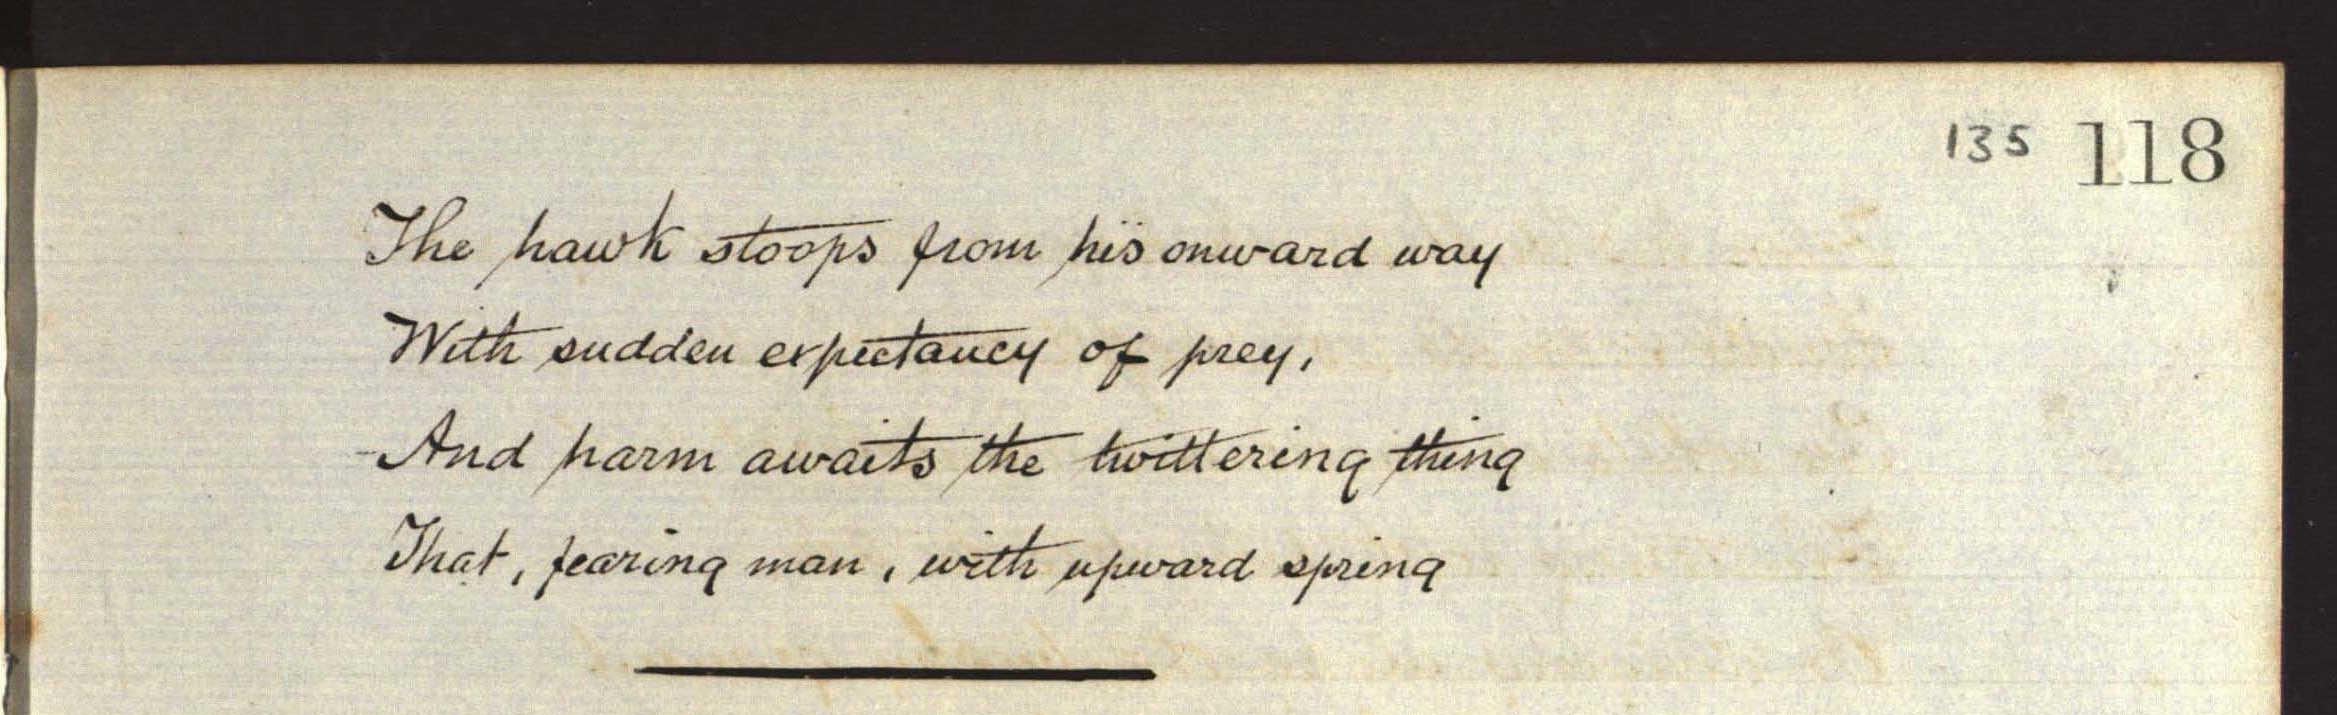 135 118
The hawk stoops from his onward way
With sudden expectancy of prey,
And harm awaits the twittering thing
That, fearing man, with upward spring